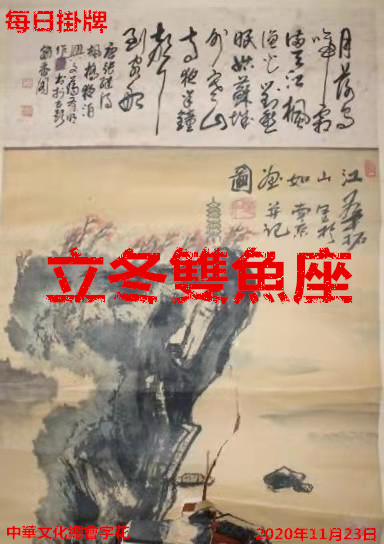 每日掛牌
月落烏
啼霜
滿天江楓
漁火對愁
眠姑蘇城
外寒山
寺夜半鐘
聲
到客船
唐張繼詩
楓橋夜泊
江
山
如
畫 并記
圖
立冬雙魚座
中華文化總會字花
2020年11月23日